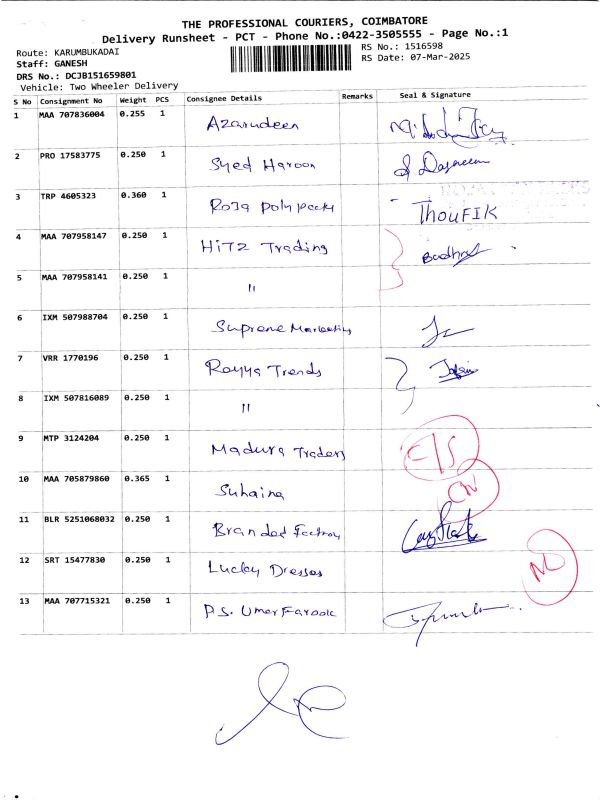 THE PROFESSIONAL COURIERS, COIMBATORE
Delivery Runsheet - PCT - Phone No.:0422-3505555 - Page No.:1
Route: KARUMBUKADAI
RS No.: 1516598
Staff: GANESH
RS Date: 07-Mar-2025
DRS No.: DCJB151659801
Vehicle: Two Wheeler Delivery
S No Consignment No Weight PCS Consignee Details Remarks Seal & Signature
1 MAA 707836004 0.255 1 Azarudeen
2 PRO 17583775 0.250 1 Syed Haroon
3 TRP 4605323 0.360 1 Roja Polypacks ThouFIK
4 MAA 707958147 0.250 1 HiTz Trading
5 MAA 707958141 0.250 1 "
6 IXM 507988704 0.250 1 Supreme Marketing
7 VRR 1770196 0.250 1 Rayya Trends
8 IXM 507816089 0.250 1 "
9 MTP 3124204 0.250 1 Madura Traders C/S
10 MAA 705879860 0.365 1 Suhaina CN
11 BLR 5251068032 0.250 1 Branded Factory
12 SRT 15477830 0.250 1 Lucky Dresses
13 MAA 707715321 0.250 1 P.S. Umer Farook